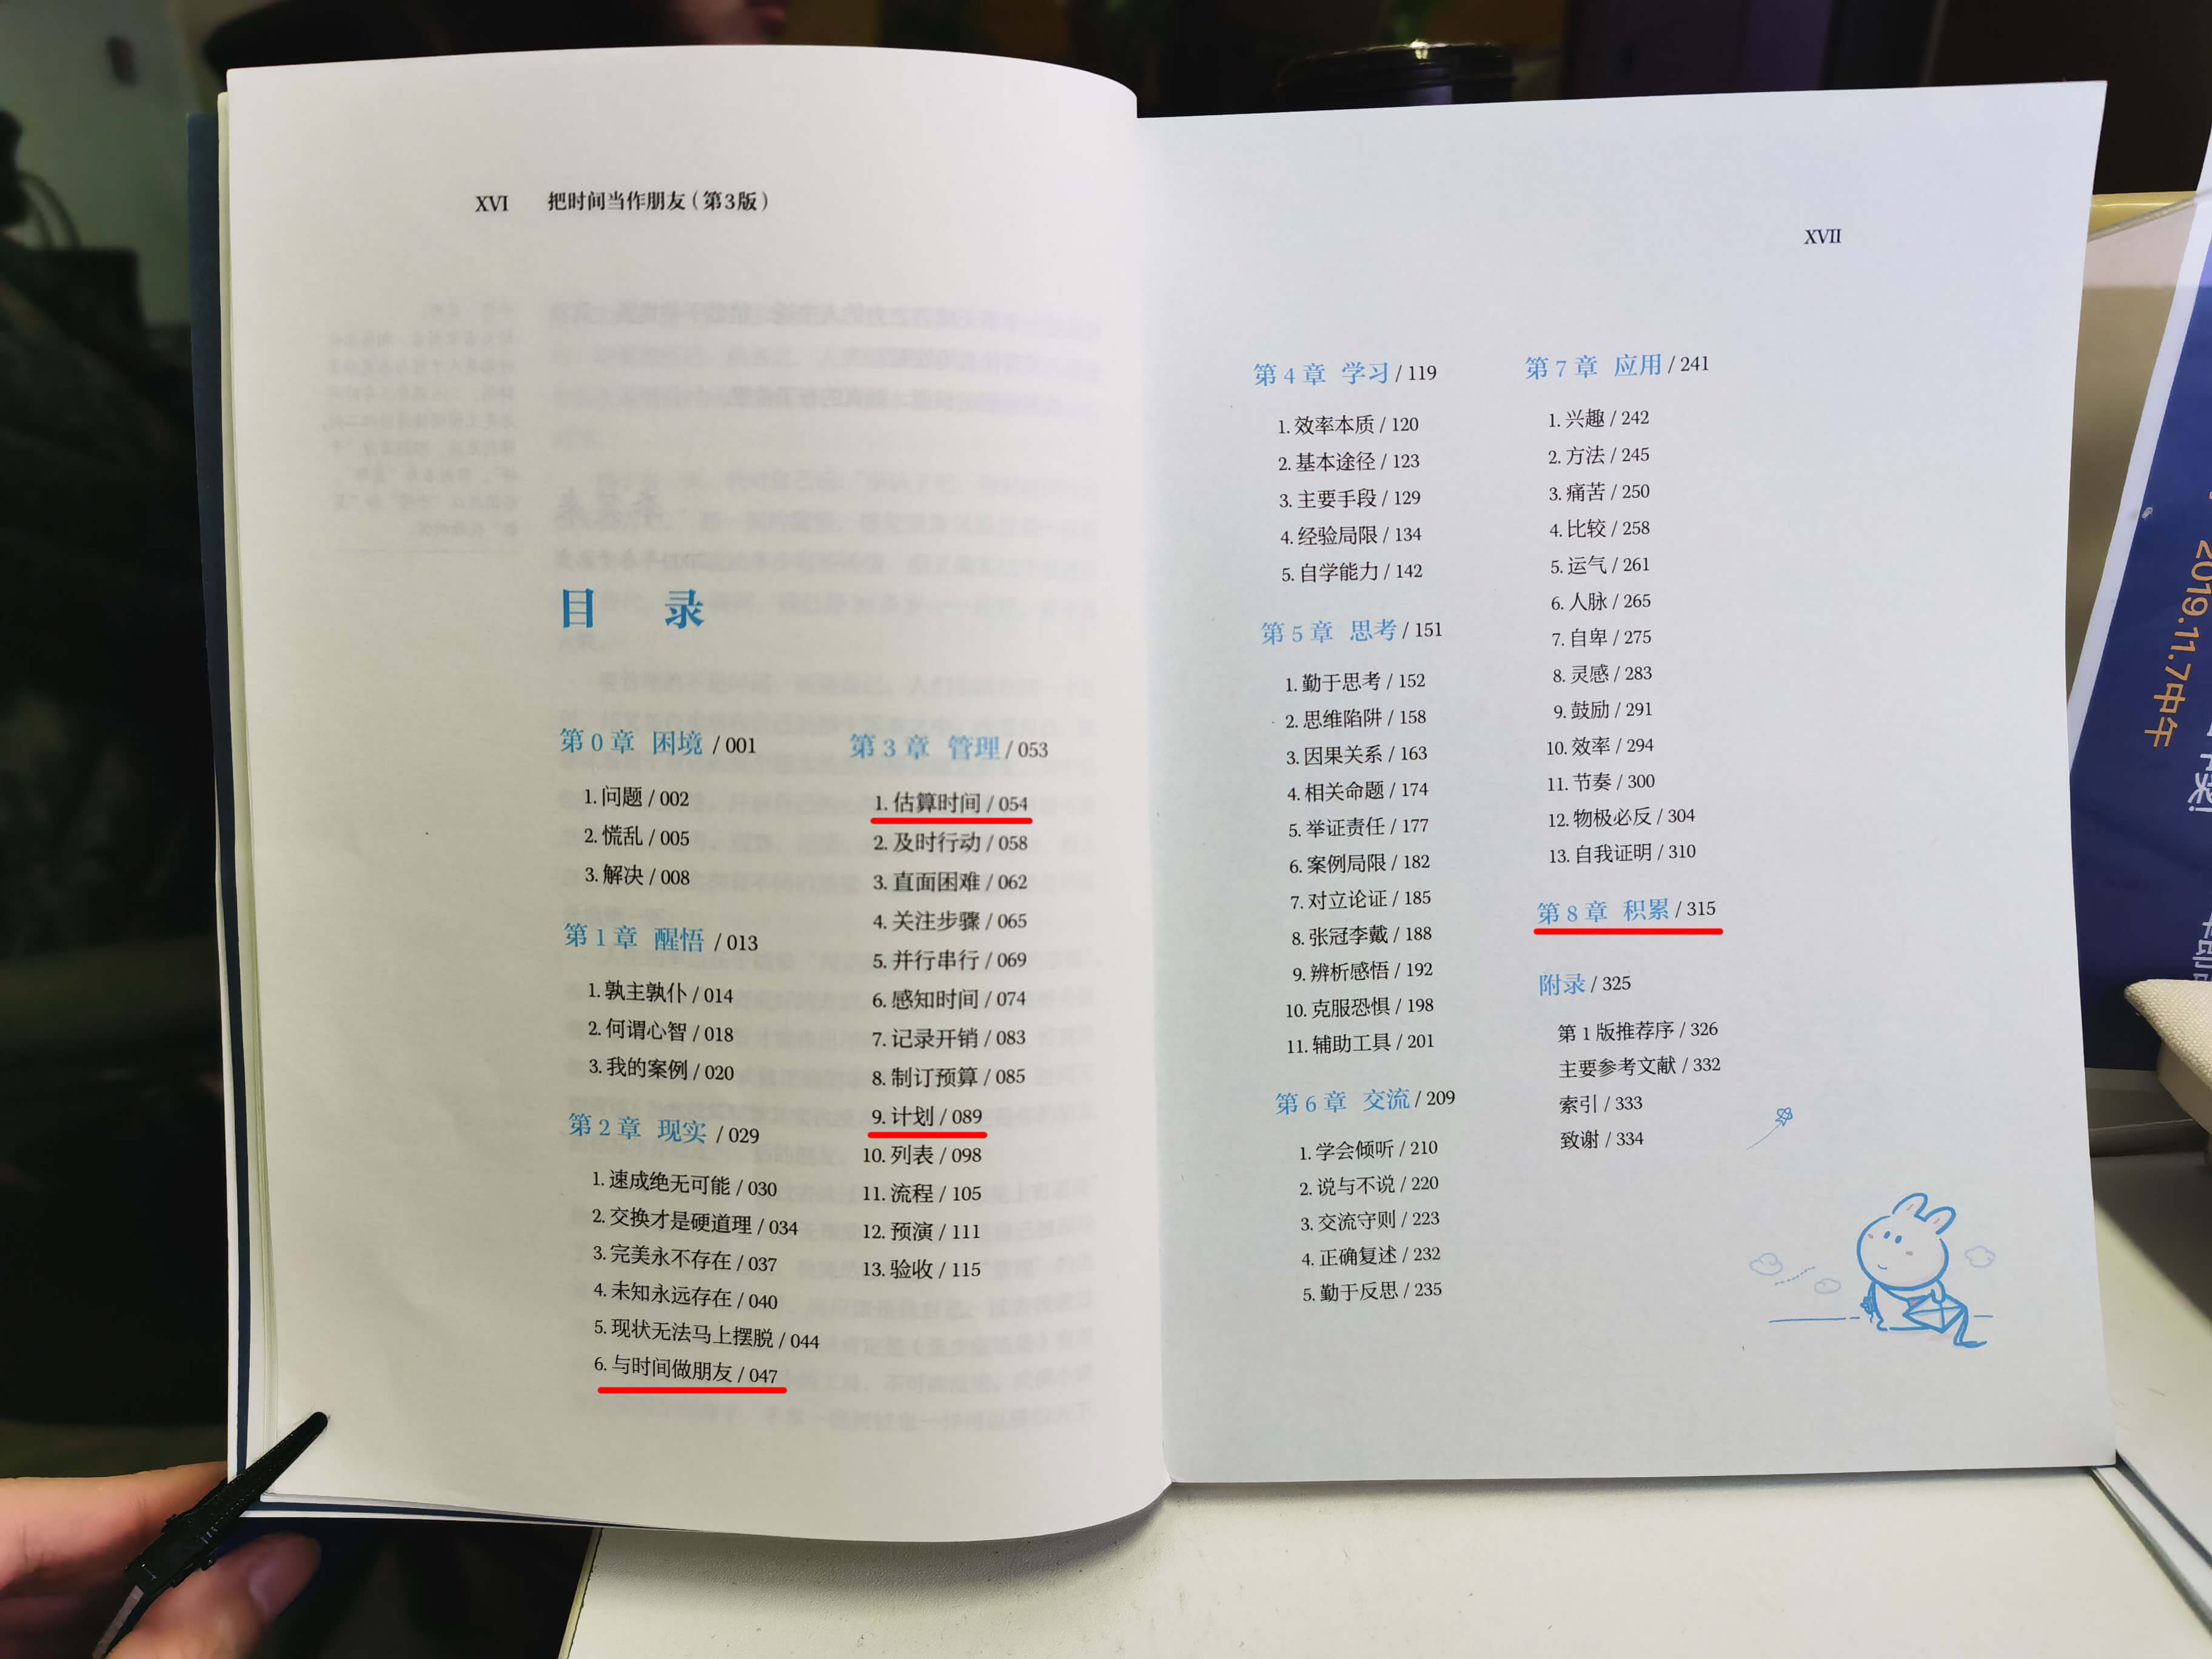 XVI 把时间当作朋友（第3版）
目 录
第 0 章 困境 / 001
1. 问题 / 002
2. 慌乱 / 005
3. 解决 / 008
第 1 章 醒悟 / 013
1. 孰主孰仆 / 014
2. 何谓心智 / 018
3. 我的案例 / 020
第 2 章 现实 / 029
1. 速成绝无可能 / 030
2. 交换才是硬道理 / 034
3. 完美永不存在 / 037
4. 未知永远存在 / 040
5. 现状无法马上摆脱 / 044
6. 与时间做朋友 / 047
第 3 章 管理 / 053
1. 估算时间 / 054
2. 及时行动 / 058
3. 直面困难 / 062
4. 关注步骤 / 065
5. 并行串行 / 069
6. 感知时间 / 074
7. 记录开销 / 083
8. 制订预算 / 085
9. 计划 / 089
10. 列表 / 098
11. 流程 / 105
12. 预演 / 111
13. 验收 / 115
XVII
第 4 章 学习 / 119
1. 效率本质 / 120
2. 基本途径 / 123
3. 主要手段 / 129
4. 经验局限 / 134
5. 自学能力 / 142
第 5 章 思考 / 151
1. 勤于思考 / 152
2. 思维陷阱 / 158
3. 因果关系 / 163
4. 相关命题 / 174
5. 举证责任 / 177
6. 案例局限 / 182
7. 对立论证 / 185
8. 张冠李戴 / 188
9. 辨析感悟 / 192
10. 克服恐惧 / 198
11. 辅助工具 / 201
第 6 章 交流 / 209
1. 学会倾听 / 210
2. 说与不说 / 220
3. 交流守则 / 223
4. 正确复述 / 232
5. 勤于反思 / 235
第 7 章 应用 / 241
1. 兴趣 / 242
2. 方法 / 245
3. 痛苦 / 250
4. 比较 / 258
5. 运气 / 261
6. 人脉 / 265
7. 自卑 / 275
8. 灵感 / 283
9. 鼓励 / 291
10. 效率 / 294
11. 节奏 / 300
12. 物极必反 / 304
13. 自我证明 / 310
第 8 章 积累 / 315
附录 / 325
第 1 版推荐序 / 326
主要参考文献 / 332
索引 / 333
致谢 / 334
2019.11.7中午